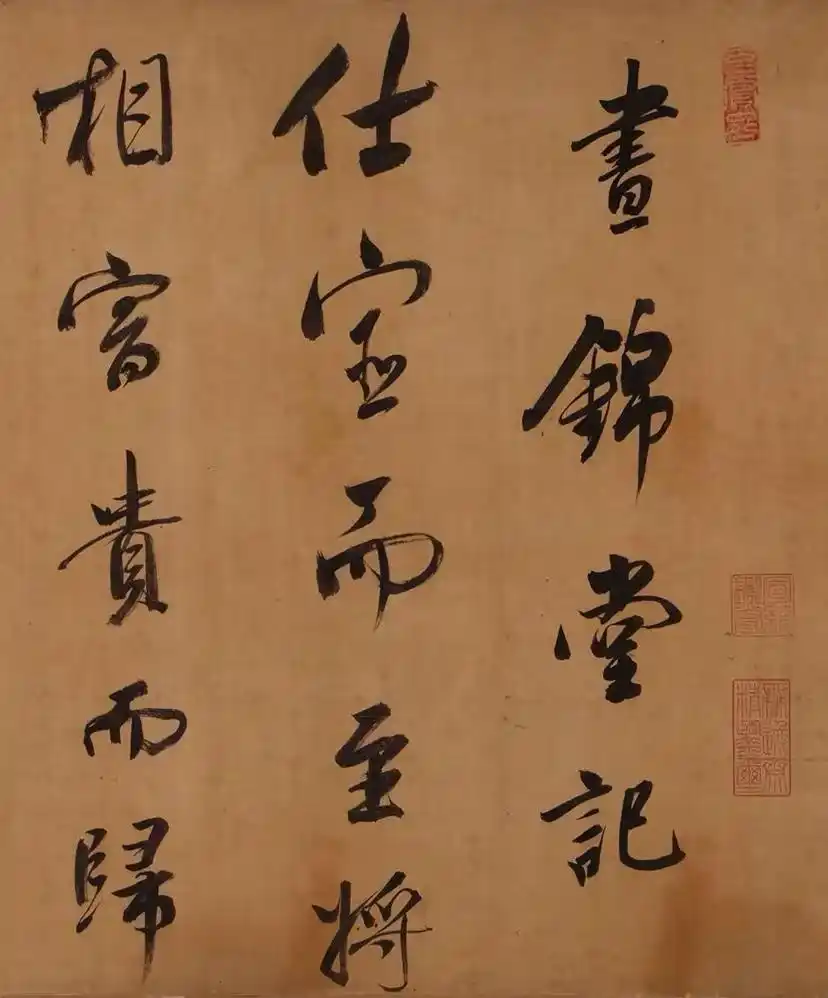 晝錦堂記
仕宦而至將
相富貴而歸